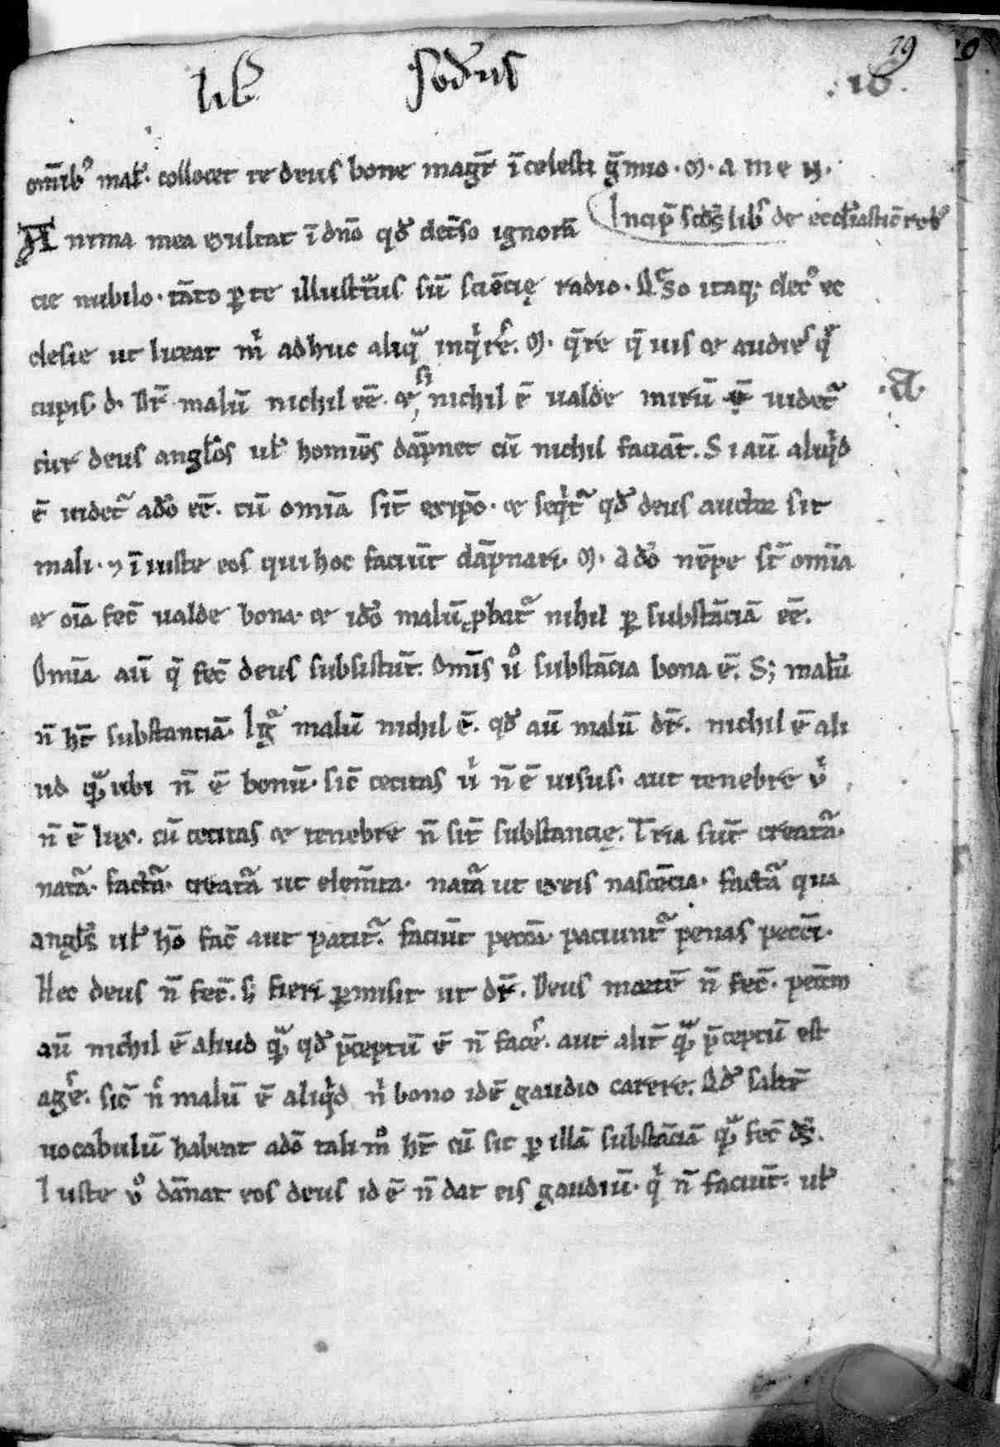 lib̄ scd̄us
19
.18.
om̄ib᷒ mal̄. collocet te deus bone magr̄ ī celesti ḡmio. M. a m e n.
Anima mea exultat ī dn̄o qd̄ detso ignorā Incip̄ scd̄s lib̄ de eccl̄iastic̄ reb᷒
cie nubilo. tāto ꝑ te illustr̄us sū sciēcię radio. Q̄so itaq; dec᷒ ec
clesie ut liceat m̄ adhuc aliq̄ inq̄rē. M. q̄re q̄ uis et audies q̄
cupis. d. Dr̄ malū nichil eē. et si nichil ē ualde mirū ē uidet᷑
cur deus angl̄os ul̄ homiēs dāpnet cū nichil faciāt. Si aū aliq̄d
ē uidet᷑ a dō eē. cū omīa sīt ex ip̄o. et seq̄t᷑ qd̄ deus auctor sit
mali. ⁊ īiuste eos qui hoc faciūt dāpnari. M. A dō nēpe st̄ omīa
et oīa fec̄ ualde bona. et idō malū ꝓbat᷑ nihil ꝑ substāciā eē.
Omīa aū q̄ fec̄ deus subsistūt. Omīs uͦ substācia bona ē. S; malū
n̄ ht̄ substanciā. Igͥ malū nichil ē. qd̄ aū malū dr̄. nichil ē ali
ud q̄ ubi n̄ ē bonū. sic̄ cecitas uͥ n̄ ē uisus. aut tenebre uͥ
n̄ ē lux. cū cecitas et tenebre n̄ sīt substancię. Tria sūt creatā.
natā. factā. creatā ut elem̄ta. natā ut ex eis nascēcia. factā qua
angl̄s ul̄ hō fac̄ aut patit᷑. faciūt pecc̄m. paciunt᷑ penas pecc̄i.
Hec deus n̄ fec̄. s; fieri ꝑmisit ut dr̄. Deus mortē n̄ fec̄. pecc̄m
aū nichil ē aliud q̄ qd̄ p̄ceptū ē n̄ facē. aut alit̄ q̄ p̄ceptū est
agē. sic̄ n̄ malū ē aliq̄d nͥ bono idē gaudio carere. Qd̄ saltē
uocabulū habeat a dō tali mͦ ht̄ cū sit ꝑ illā substāciā q̄ fec̄ ds̄.
Iuste uͦ dānat eos deus id ē n̄ dat eis gaudiū. qͥ n̄ faciūt. ul̄
.A.